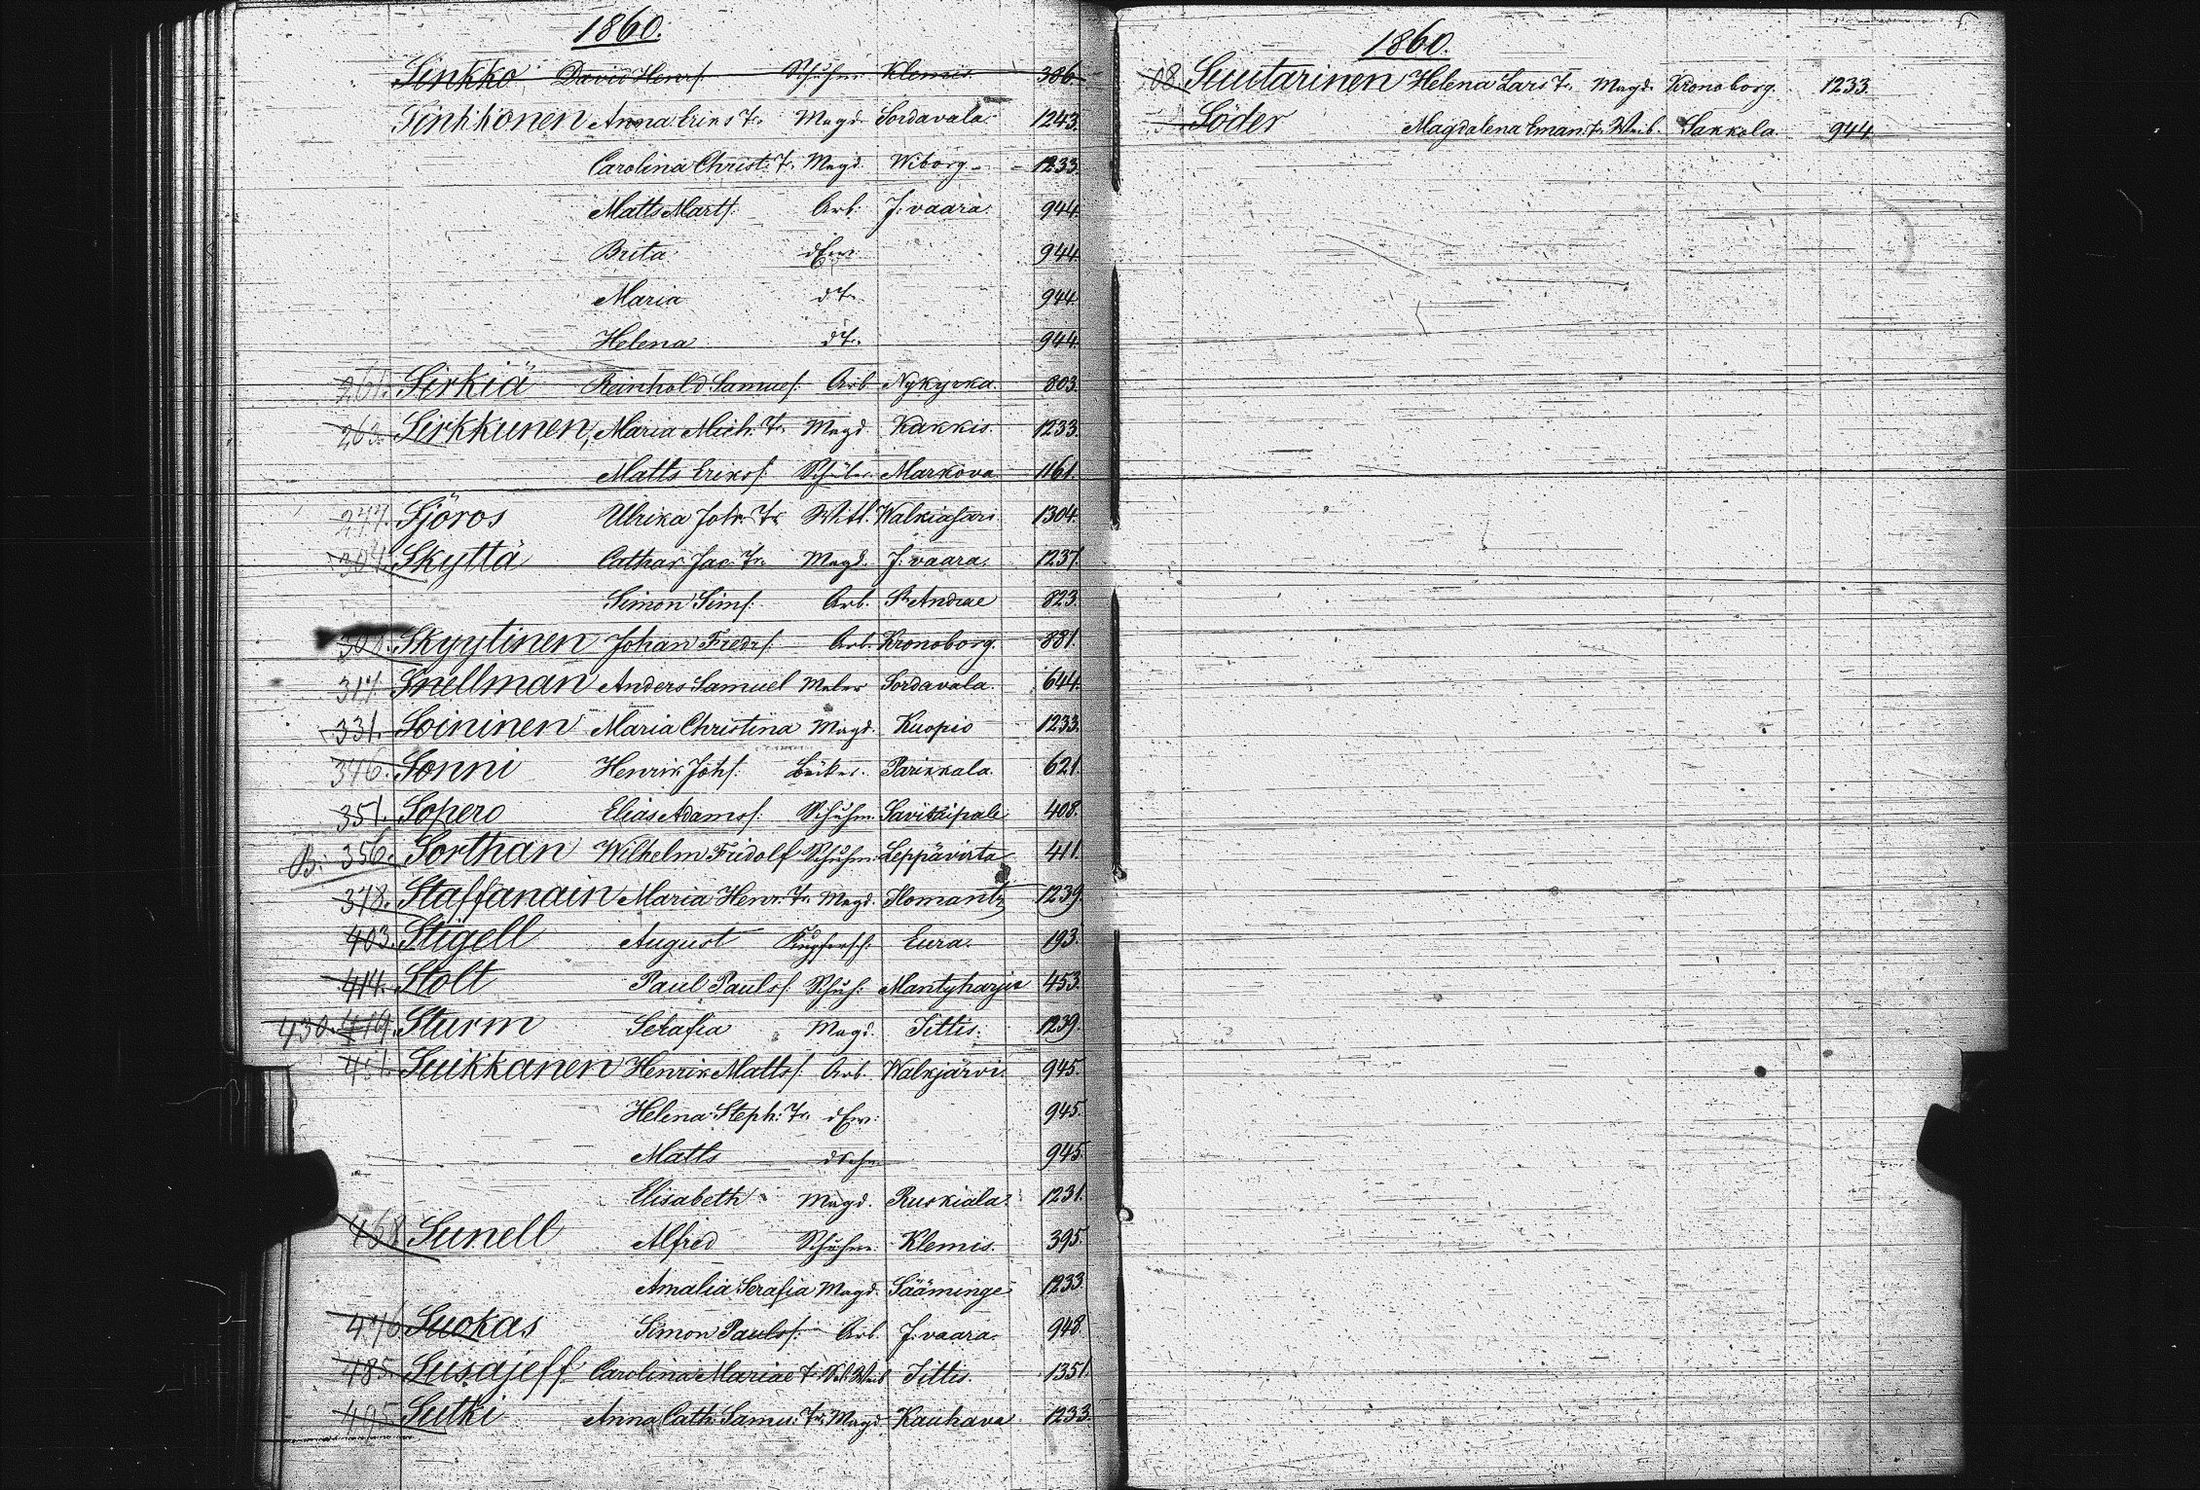 1860.
Sinkko David Henrs. Schuhm. Klemis. 386.
Sinkkonen Anna Eriks Tr. Magd. Sordavala. 1243.
Carolina Christ. Tr. Magd. Wiborg 1233.
Matts Marts. Arb. J:vaara. 944.
Brita dEw. 944.
Maria dTr. 944.
Helena dTr. 944.
261. Sirkiä Reinhold Samuels. Arb. Nykyrka. 803.
263. Sirkkunen, Maria Mich. Tr. Magd. Kakkis. 1233.
Matts Eriks. Schüler. Markova 1161.
277. Sjöros Ulrika Joh. Tr. Witt. Walkiasari 1304.
304. Skyttä Cathar. Jac. Tr. Magd. J:vaara. 1237.
Simon Sims. Arb. St Andrae 823.
308. Skyytinen Johan Fredrs. Arb. Kronoborg. 881.
317. Snellman Anders Samuel Maler Sordavala. 644.
331. Soininen Maria Christina Magd. Kuopio 1233.
346. Sonni Henrik Johs. Bäcker. Parikkala. 621.
351. Sopero Elias Adams. Schuhm. Savitaipale 408.
B: 356. Sorthan Wilhelm Fridolf Schuhm. Leppävirta 411.
378. Staffanain Maria Henr. Tr. Magd. Ilomantz 1239.
403. Stigell August Kupfersch. Eura. 193.
414. Stolt Paul Pauls. Schuh. Mantyharju 453.
430. 419. Sturm Serafia Magd. Sittis. 1239.
451. Suikkanen Henrik Matts. Arb. Walkjärvi. 945.
Helena Steph. Tr. dEw. 945.
Matts dSohn 945.
Elisabeth Magd. Ruskiala. 1231.
468 Sunell Alfred Schuhm. Klemis. 395.
Amalia Serafia Magd. Sääminge 1233.
476 Suokas Simon Pauls. Arb. J:vaara. 948.
485. Susajeff Carolina Mariae T. Sol. Weib Sittis. 1351.
495 Sutki Anna Cath. Samu. Tr. Magd. Kauhava 1233.
1860.
08. Suutarinen Helena Lars Tr. Magd. Kronoborg. 1233.
Söder Magdalena Eman. Tr. Weib. Sakkola. 944.